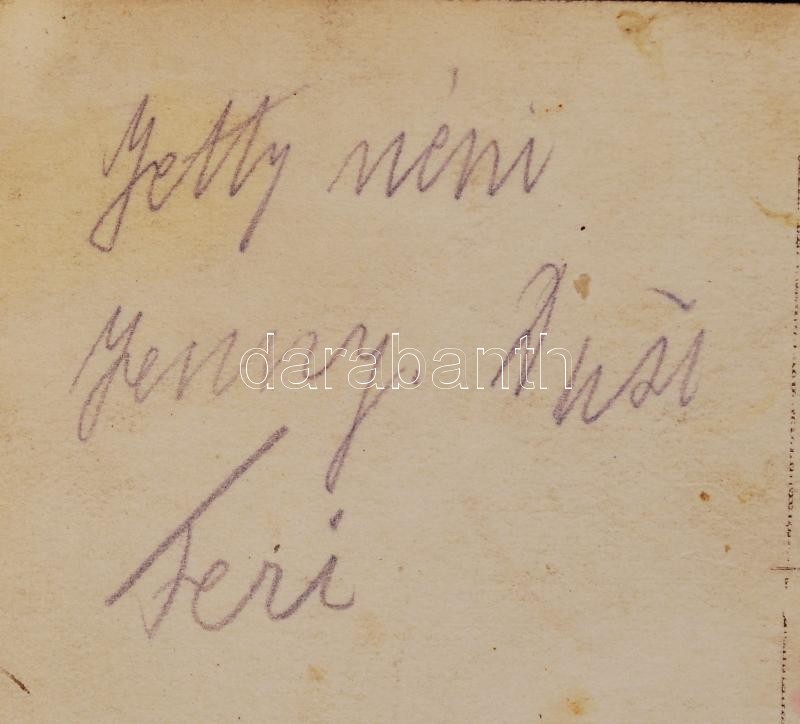 Jetty néni
Jenny. Duši
Feri
darabanth